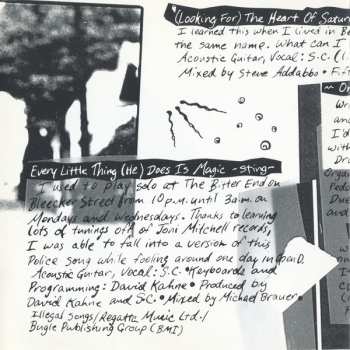 (Looking For) The Heart Of Satur
I learned this when I lived in B
the same name. What can I
Acoustic Guitar, Vocal: S.C.
Mixed by Steve Addabbo • Fif
Every Little Thing (He) Does Is Magic -Sting-
I used to play solo at The Bitter End on
Bleecker Street from 10 p.m. until 3 a.m. on
Mondays and Wednesdays. Thanks to learning
lots of tunings off of Joni Mitchell records,
I was able to fall into a version of this
Police song while fooling around one day in
Acoustic Guitar, Vocal: S.C. • Keyboards and
Programming: David Kahne • Produced by
David Kahne and S.C. • Mixed by Michael Brauer •
Illegal Songs/Regatta Music Ltd./
Bugle Publishing Group (BMI)
Wr
and
I'd
with
Dr
Organ
Peda
Due
and